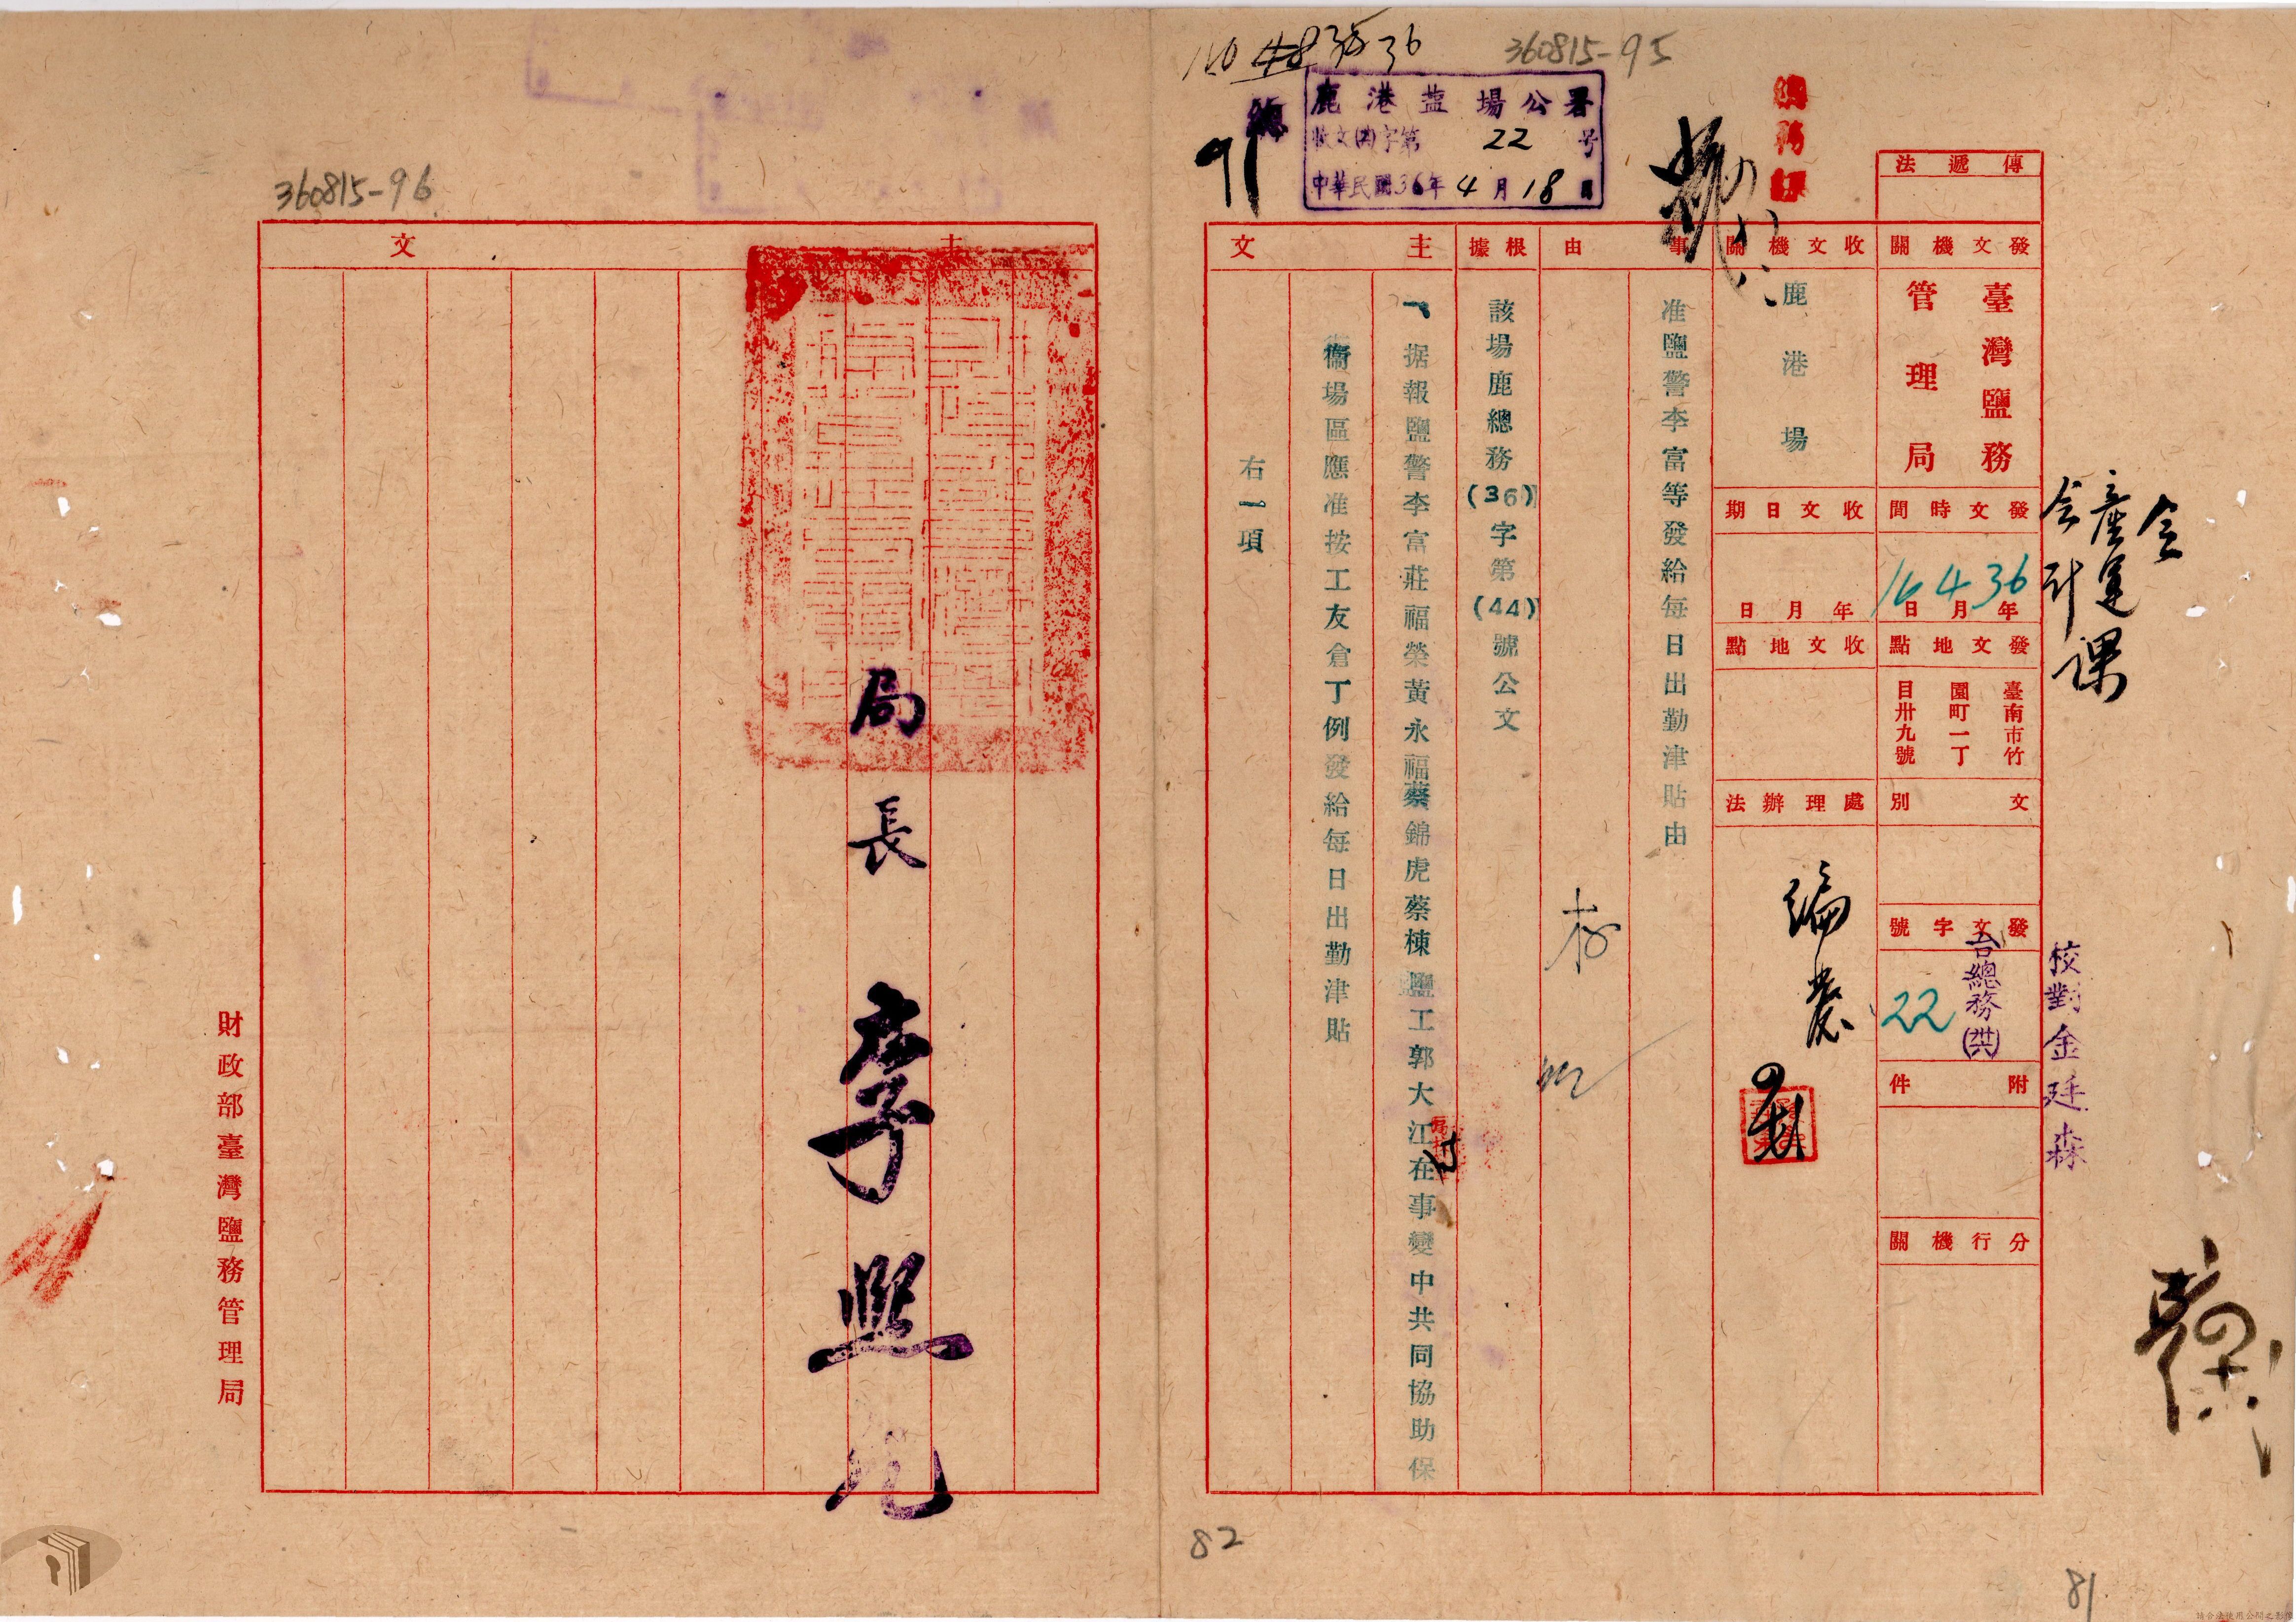 360815-95
鹿港盐場公署
收文(肉)字第 22 号
中華民國36年4月18日
傳遞法
發文機關
臺灣鹽務
管理局
發文時間
36年4月16日
發文地點
臺南市竹
園町一丁
目卅九號
文別
發文字號
台總務(洪)
22
附件
分行機關
收文機關
鹿港場
收文日期
年月日
收文地點
處理辦法
編農
事由
准鹽警李富等發給每日出勤津貼由
根據
該場鹿總務(36)字第(44)號公文
主文
一据報鹽警李富莊福榮黃永福蔡錦虎蔡棟鹽工郭大江在事變中共同協助保
衛場區應准按工友倉丁例發給每日出勤津貼
右一項
會
產運課
会計
校對金廷森
82
81
360815-96
主文
局長 李熙元
財政部臺灣鹽務管理局